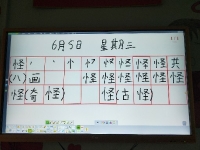 6月5日 星期三
怪 丶 丷 忄 忄 怪 怪 怪 怪 怪 共
(八)画 怪 怪 怪 怪 怪 怪
怪(奇怪) 怪(古怪)